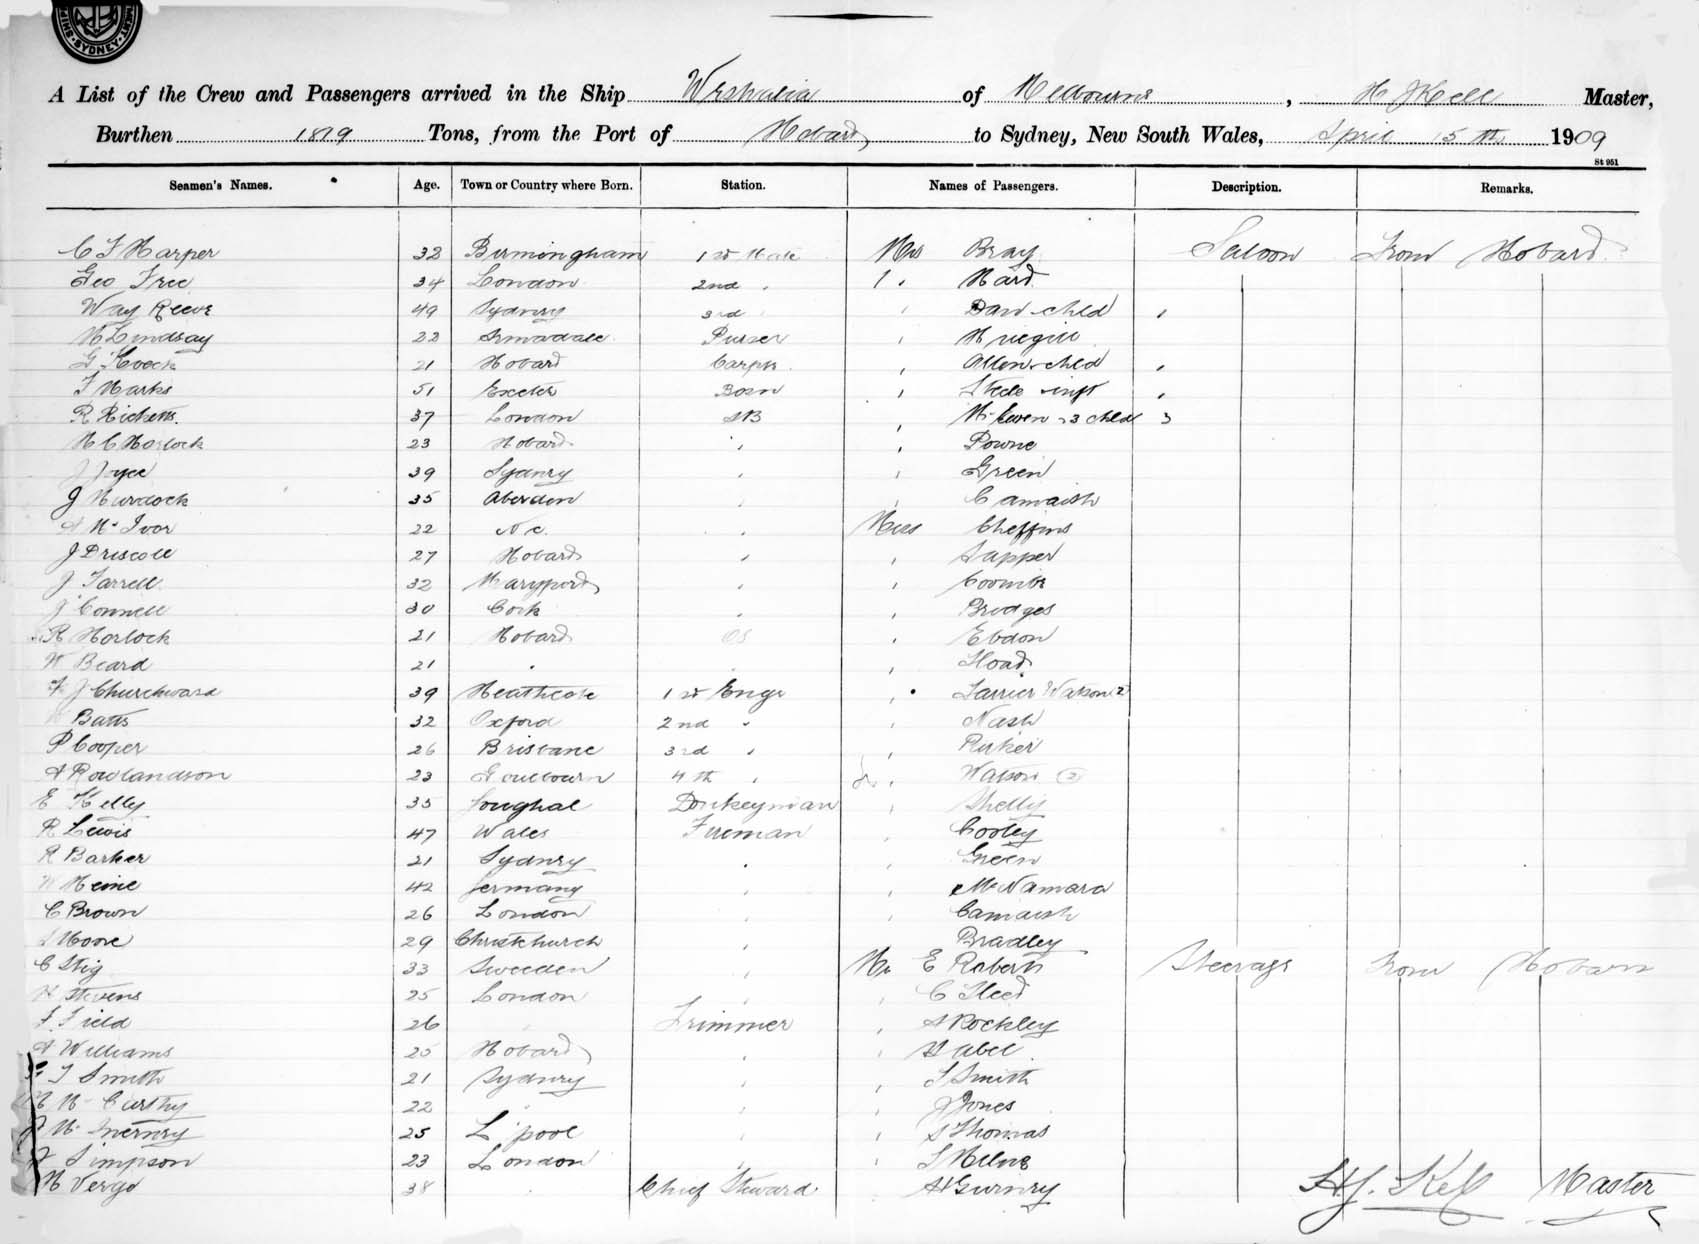 SYDNEY
A List of the Crew and Passengers arrived in the Ship Westralia of Melbourne, H J Kell Master,
Burthen 1819 Tons, from the Port of Hobart to Sydney, New South Wales, April 15th 1909
St 951
Seamen's Names. Age. Town or Country where Born. Station. Names of Passengers. Description. Remarks.
C F Harper 32 Birmingham 1st Mate Mrs Bray Saloon From Hobart
Geo Free 34 London 2nd " Ward
Way Reeve 49 Sydney 3rd " child
H Lindsay 22 Armadale Purser
G 21 Hobart Carptr Allen & child
F Marks 51 Exeter Bosn Steele & inft
R Ricketts 37 London AB 3 child 3
H C Horlock 23 Hobart " Powne
J Joyce 39 Sydney " Green
J Murdock 35 Aberdeen " Camaish
A McIvor 22 N.C. " Miss Cheffins
J Driscoll 27 Hobart " Sapper
J Farrell 32 Maryport "
J Connell 30 Cork " Bridges
R Horlock 21 Hobart OS Ebdon
W Beard 21 " Hoad
J Churchward 39 Heathcote 1st Engr Watson 2
W Batts 32 Oxford 2nd " Nash
P Cooper 26 Brisbane 3rd "
A Rowlandson 23 Goulbourn 4th " Watson (2)
E Kelly 35 Youghal Donkeyman Shelly
R Lewis 47 Wales Fireman Cooley
R Barker 21 Sydney " Green
W Heine 42 Germany " McNamara
C Brown 26 London " Camaish
Moore 29 Christchurch " Bradley
C Stig 33 Sweeden " Mr E Roberts Steerage From Hobart
H Stevens 25 London " C
F Field 26 " Trimmer A Rockley
A Williams 25 Hobart " H Abel
T Smith 21 Sydney " T Smith
McCarthy 22 " " J Jones
J McInerney 25 L'pool " S Thomas
J Simpson 23 London " T Milne
H Vergo 38 " Chief Steward A Gurney
H.J. Kell Master